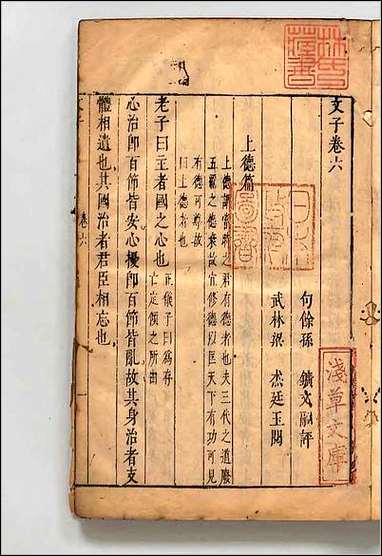 文子卷六
句餘孫　鑛文融評
武林梁　杰廷玉閱
上德篇
上德謂當時之君有德者也夫三代之道廢
五霸之德衰故宜修德以匡天下有功可見
有德可尊故
曰上德者也
老子曰主者國之心也
正儀子曰爲存
亡定傾之所由
心治卽百節皆安心擾卽百節皆亂故其身治者支
體相遺也其國治者君臣相忘也
文子
卷六
一
淺草文庫
林氏
藏書
日本